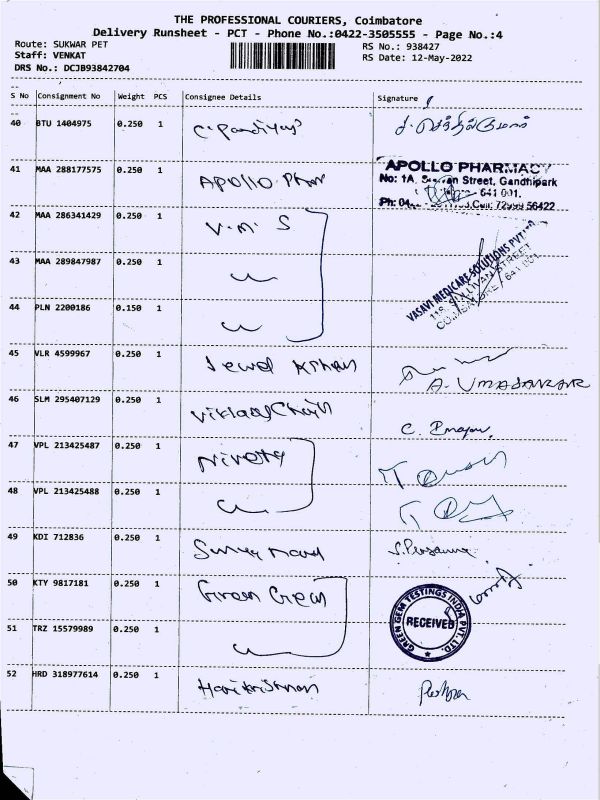 THE PROFESSIONAL COURIERS, Coimbatore
Delivery Runsheet - PCT - Phone No.:0422-3505555 - Page No.:4
Route: SUKWAR PET
RS No.: 938427
Staff: VENKAT
RS Date: 12-May-2022
DRS No.: DCJB93842704
S No Consignment No Weight PCS Consignee Details Signature
40 BTU 1404975 0.250 1 C. Pandiyaj ச. செந்தில்குமார்
41 MAA 288177575 0.250 1 APOLLO
APOLLO PHARMACY
No: 1A, Street, Gandhipark
641 001.
Ph: 04 Cell: 72999 56422
42 MAA 286341429 0.250 1 V.M. S
VASAVI MEDICARE SOLUTIONS PVT
118, SULLIVAN STREET
COIMBATORE / 641 001
43 MAA 289847987 0.250 1
44 PLN 2200186 0.150 1
45 VLR 4599967 0.250 1 Jewel Krishan
A. UMASANKAR
46 SLM 295407129 0.250 1 C.
47 VPL 213425487 0.250 1
48 VPL 213425488 0.250 1
49 KDI 712836 0.250 1 S. Prasanna
50 KTY 9817181 0.250 1 Green Gem
GREEN GEM TESTINGS INDIA PVT. LTD.
RECEIVED
51 TRZ 15579989 0.250 1
52 HRD 318977614 0.250 1 Harikrishnan